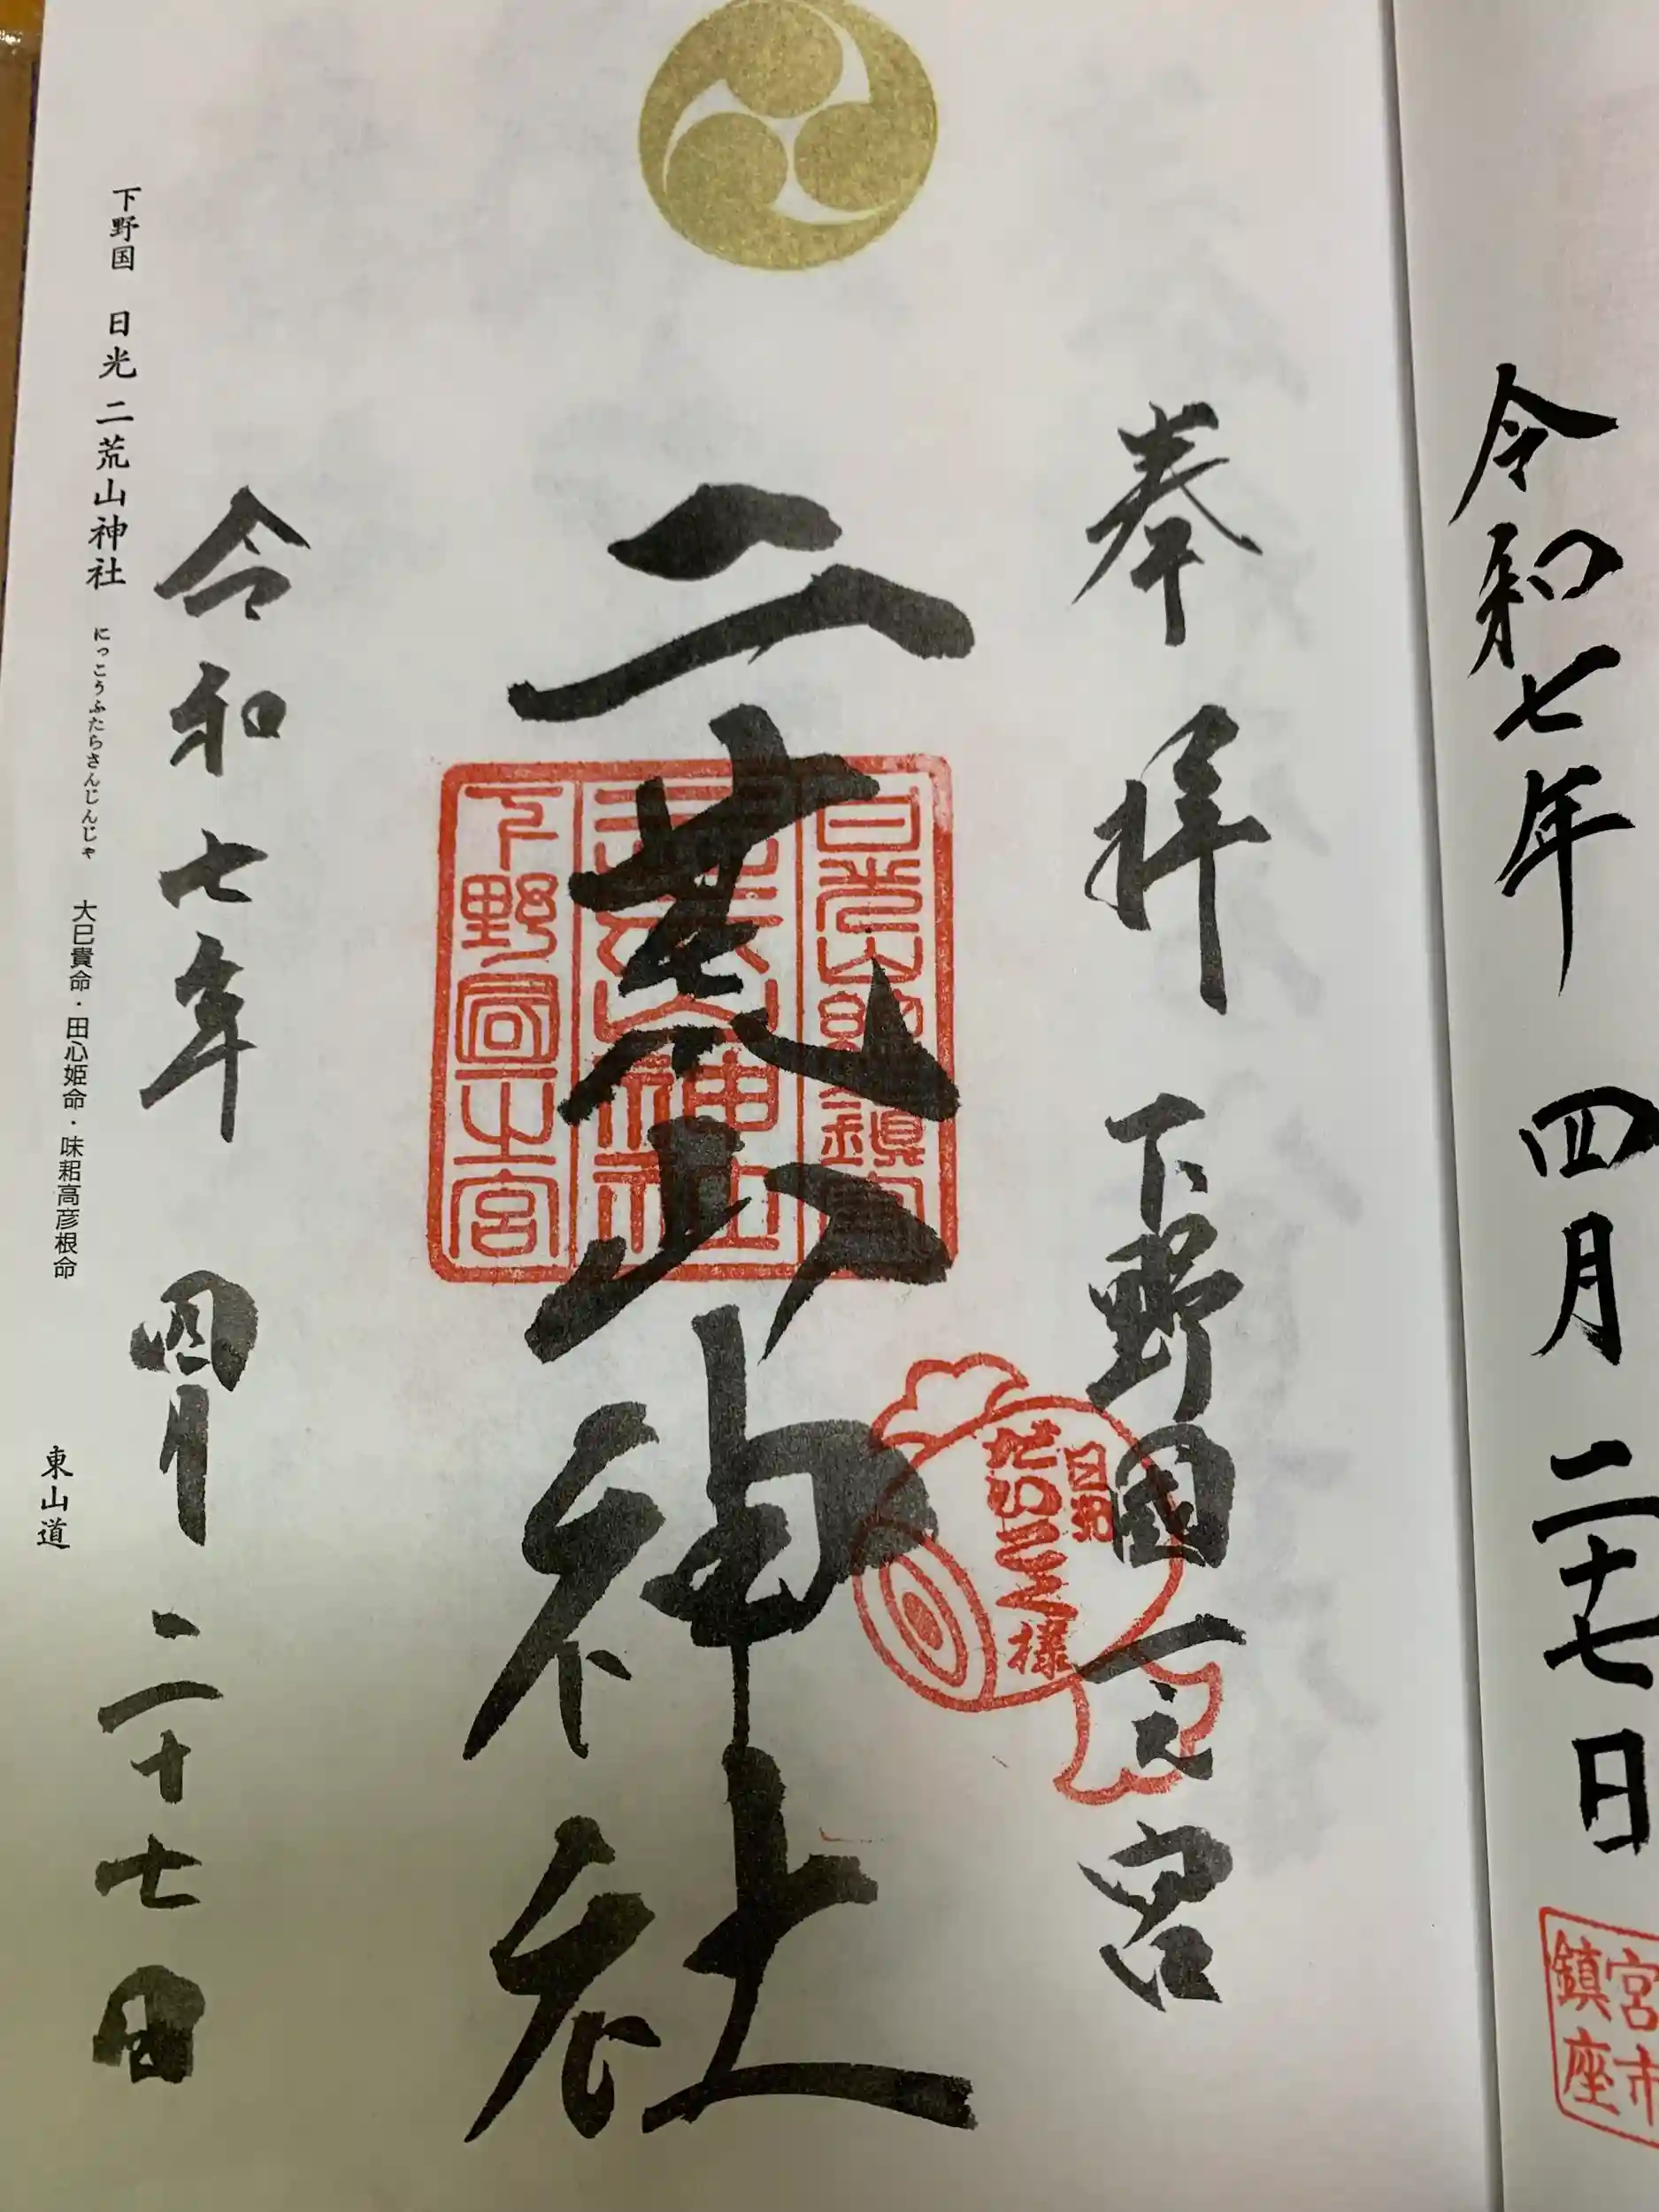 令和七年 四月二十七日
鎮座
奉拝 下野国一之宮
二荒山神社
日光
だいこく様
下野国一之宮
令和七年 四月二十七日
下野国 日光二荒山神社 にっこうふたらさんじんじゃ 大巳貴命・田心姫命・味耜高彦根命 東山道